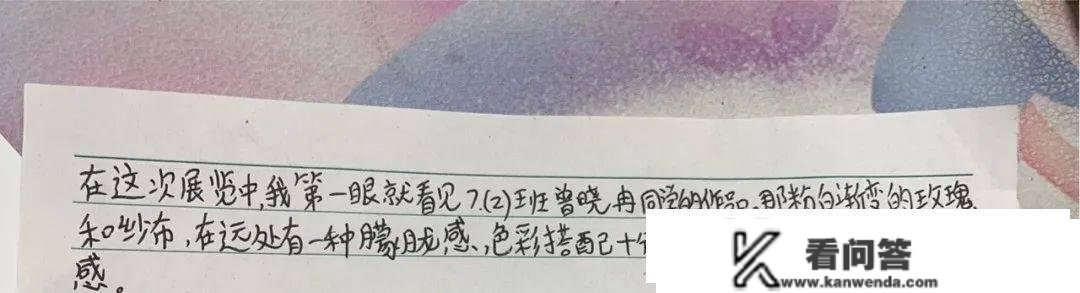 在这次展览中,我第一眼就看见7.(2)班曾晓冉同学的作品,那粉白渐变的玫瑰
和纱布,在远处有一种朦胧感,色彩搭配十分
感。
看问答
www.kanwenda.com